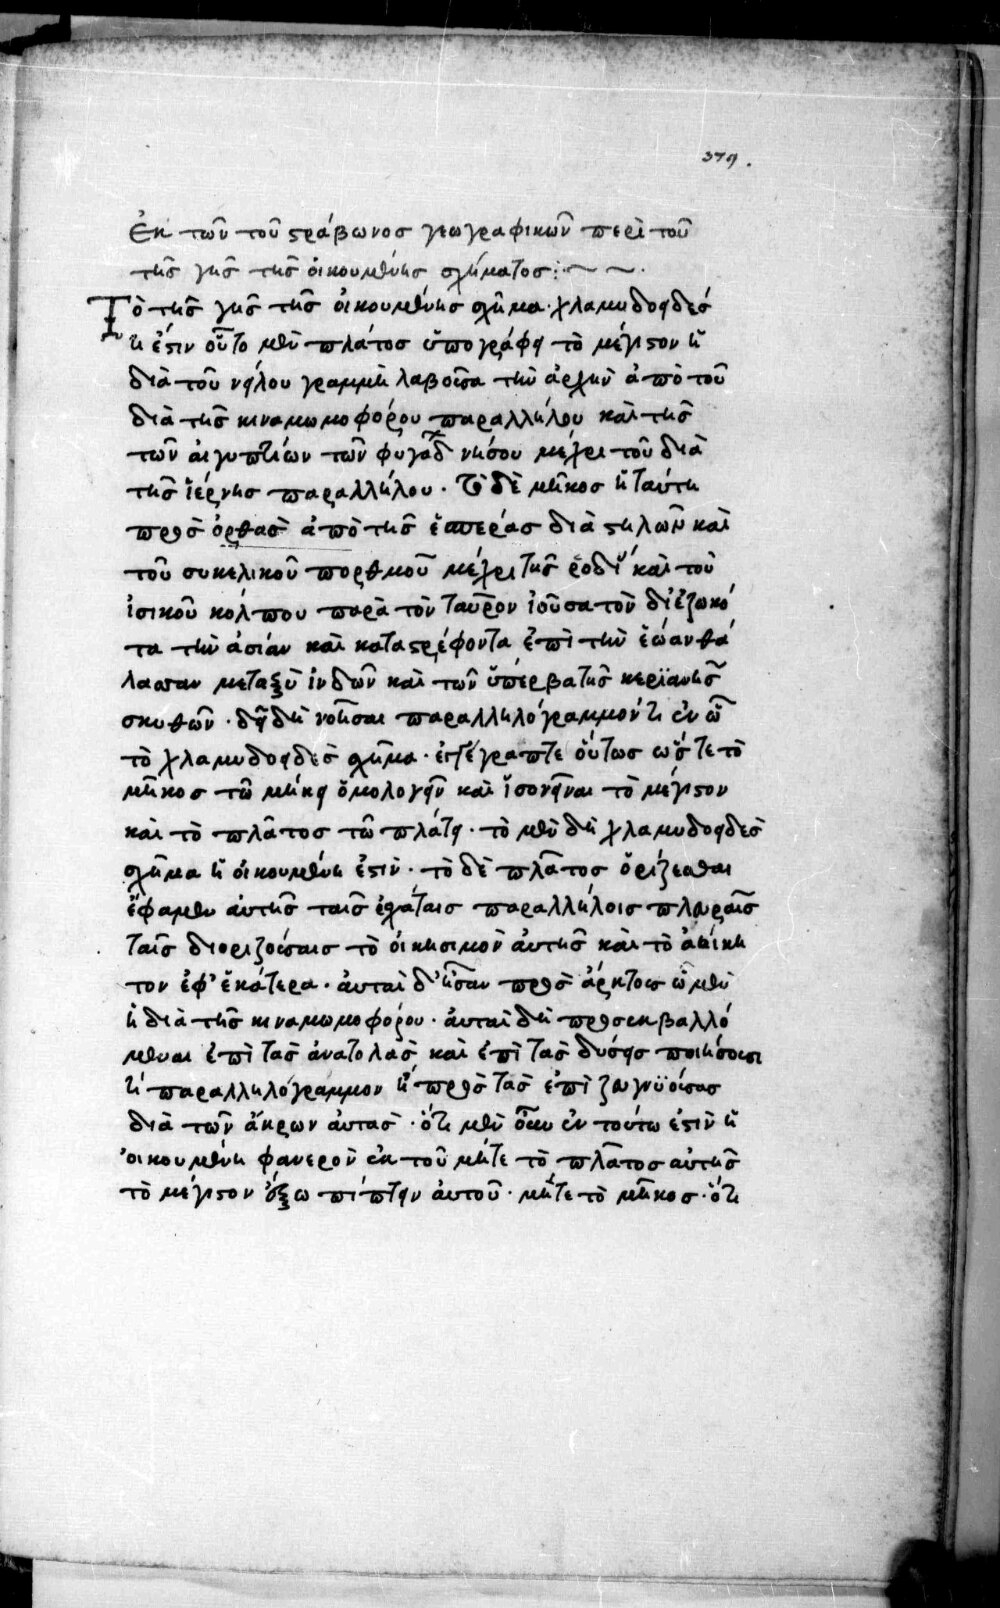 379.
Ἐκ τῶν τοῦ στράβωνος γεωγραφικῶν περὶ τοῦ
τῆς γῆς τῆς οἰκουμένης σχήματος :~ ~.
Τὸ τῆς γῆς τῆς οἰκουμένης σχῆμα· χλαμυδοειδές
τί ἐστιν οὗ τὸ μὲν πλάτος ὑπογράφει τὸ μέγιστον ἡ
διὰ τοῦ νείλου γραμμὴ λαβοῦσα τὴν ἀρχὴν ἀπὸ τοῦ
διὰ τῆς κιναμωμοφόρου παραλλήλου καὶ τῆς
τῶν αἰγυπτίων τῶν φυγάδ νήσου μέχρι τοῦ διὰ
τῆς ἰέρνης παραλλήλου· τὸ δὲ μῆκος ἡ ταύτη
πρὸς ὀρθὰς ἀπὸ τῆς ἑσπέρας διὰ στηλῶν καὶ
τοῦ συκελικοῦ πορθμοῦ μέχρι τῆς ῥοδί καὶ τοῦ
ἰσικοῦ κόλπου παρὰ τὸν ταῦρον ἰοῦσα τὸν διεζωκό
τα τὴν ἀσίαν καὶ καταστρέφοντα ἐπὶ τὴν ἑώαν θά
λασσαν μεταξὺ ἰνδῶν καὶ τῶν ὑπὲρ βατῆς κερϊανῆς
σκυθῶν· δεῖ δὴ νοῆσαι παραλληλόγραμμόν τι ἐν ᾧ
τὸ χλαμυδοειδὲς σχῆμα· ἐγγέγραπτε οὕτως ὥστε τὸ
μῆκος τῶ μήκει ὁμολογεῖν καὶ ἴσον εἶναι τὸ μέγιστον
καὶ τὸ πλᾶτος τῶ πλάτει· τὸ μὲν δὴ χλαμυδοειδὲς
σχῆμα ἡ οἰκουμένη ἐστὶν· τὸ δὲ πλᾶτος ὁρίζεσθαι
ἔφαμεν αὐτῆς ταῖς ἐσχάταις παραλλήλοις πλευραῖς
ταῖς διοριζούσαις τὸ οἰκησιμὸν αὐτῆς καὶ τὸ ἀοίκη
τον ἐφ' ἑκάτερα· αὗται δ' ἦσαν πρὸς ἄρκτοις ὧ μὲν
ἡ διὰ τῆς κιναμωμοφόρου· αὗται δὴ προσεκβαλλό
μεναι ἐπὶ τὰς ἀνατολὰς καὶ ἐπὶ τὰς δύσεις ποιήσουσι
τί παραλληλόγραμμον ἡ πρὸς τὰς ἐπὶ ζευγνϋούσας
διὰ τῶν ἄκρων αὐτὰς· ὅτι μὲν οὖν ἐν τούτω ἐστὶν ἡ
οἰκουμένη φανερὸν ἐκ τοῦ μήτε τὸ πλᾶτος αὐτῆς
τὸ μέγιστον ἔξω πίπτειν αὐτοῦ· μήτε τὸ μῆκος· ὅτι